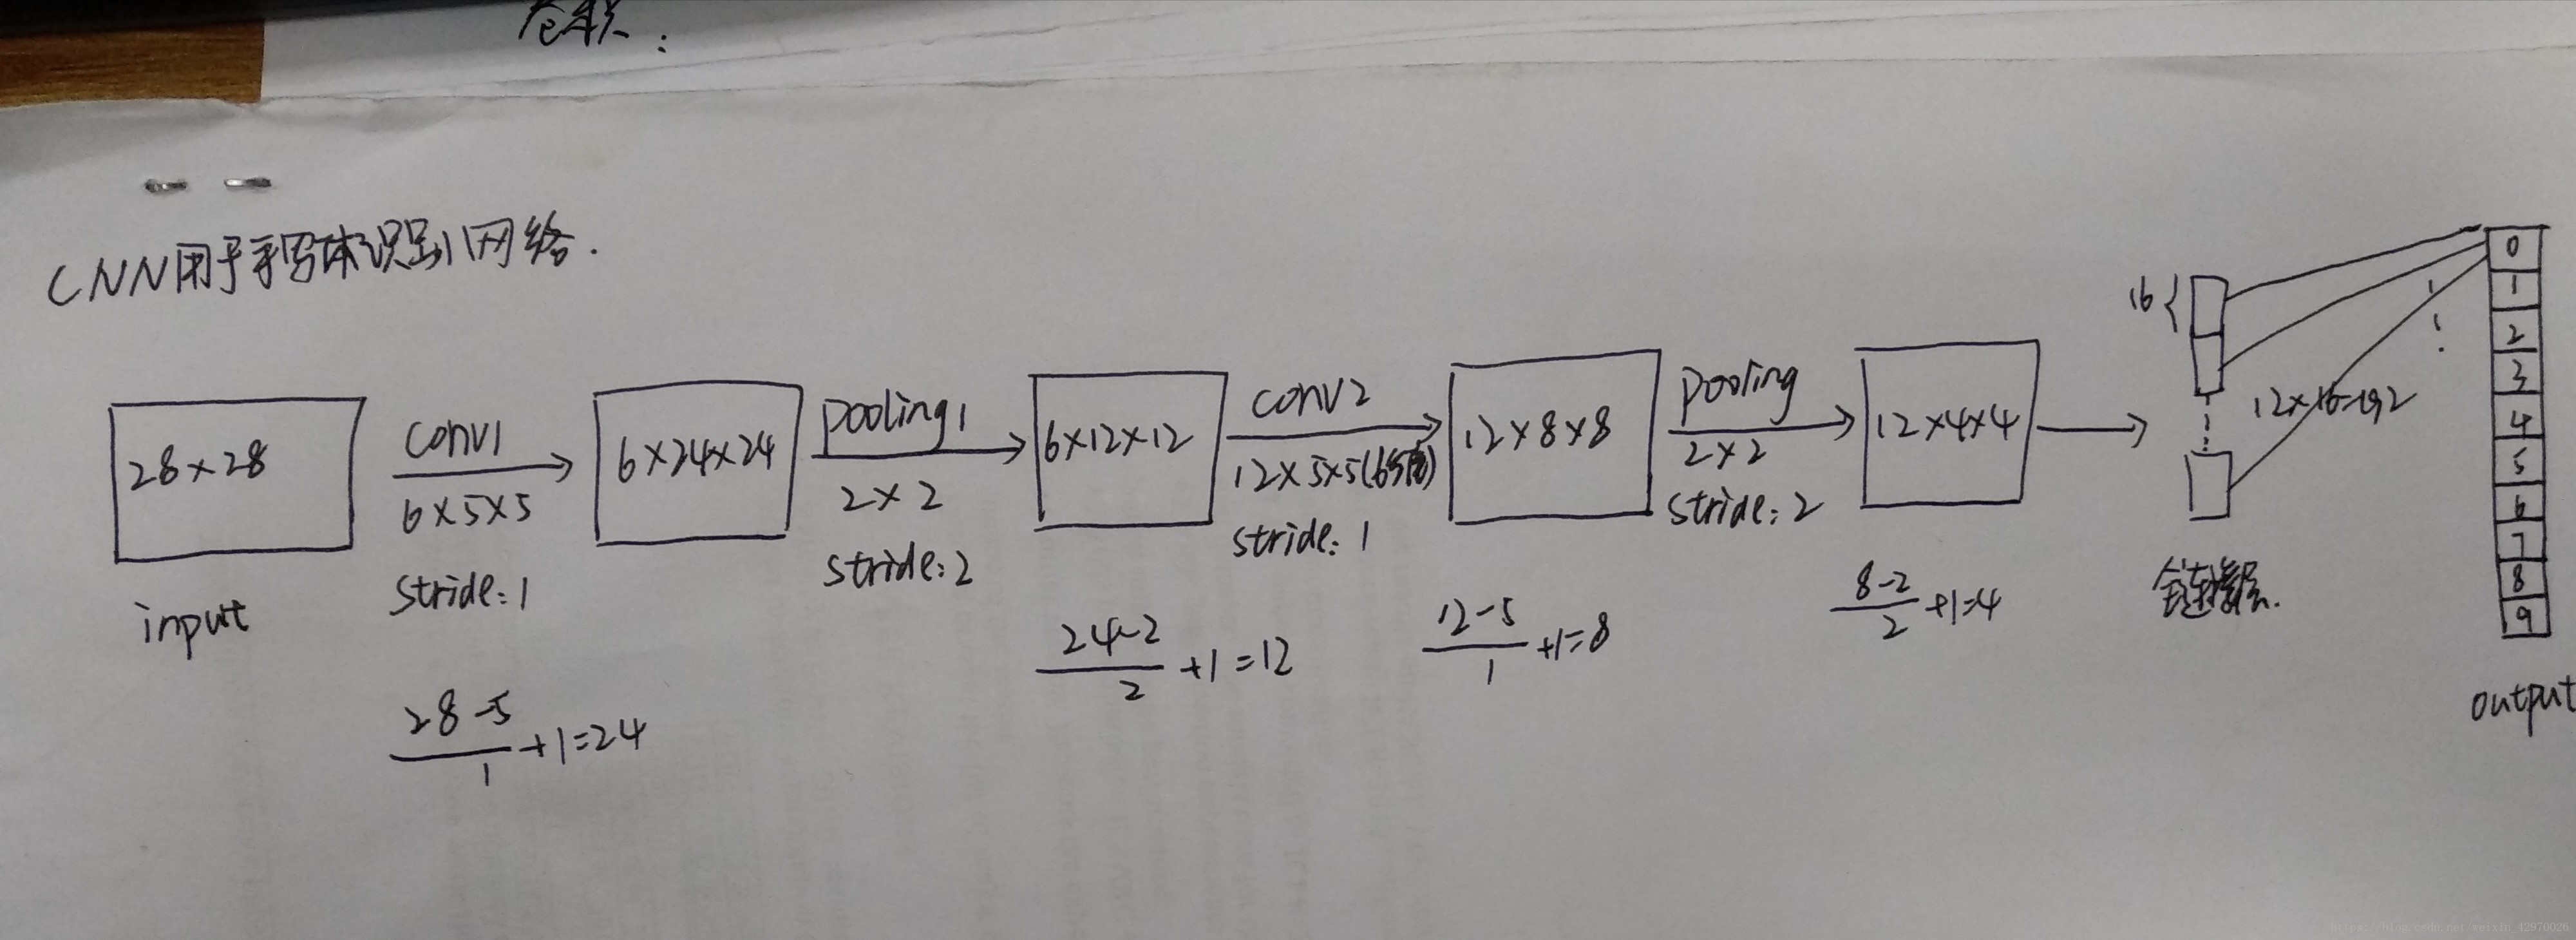 CNN用于手写体识别网络.
28×28
input
conv1
6×5×5
stride:1
28-5
1
+1=24
6×24×24
pooling1
2×2
stride:2
6×12×12
24-2
2
+1=12
conv2
12×5×5(6
stride:1
12×8×8
12-5
1
+1=8
pooling
2×2
stride:2
12×4×4
8-2
2
+1=4
16{
全连接层.
12×16=192
0
1
2
3
4
5
6
7
8
9
output